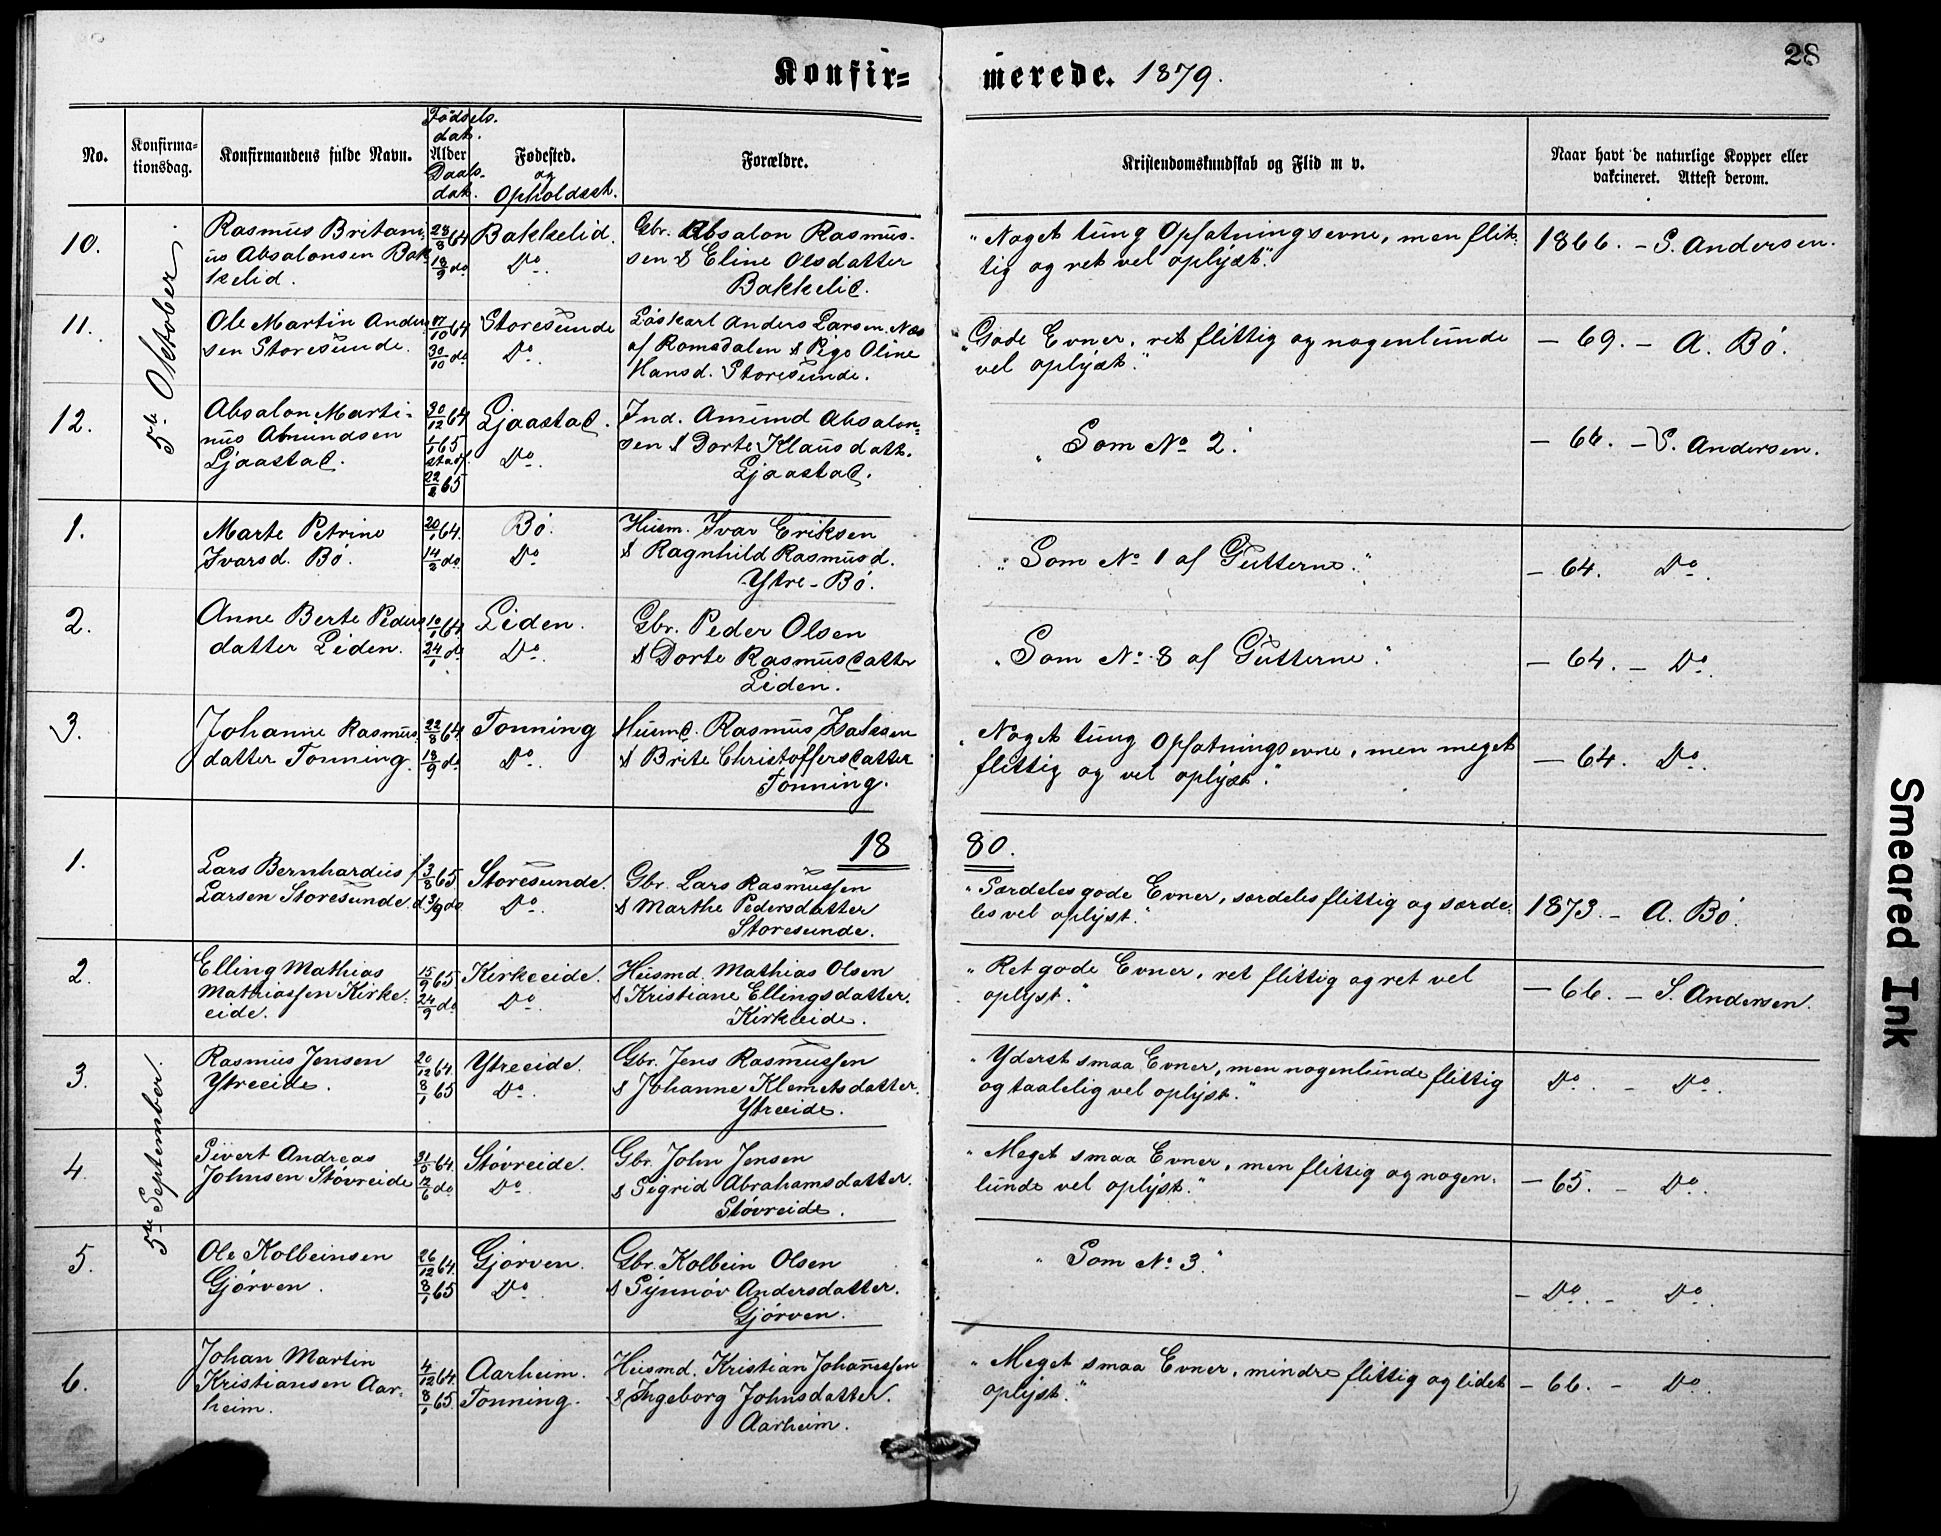 Konfirmerede. 1879.
28
No.
Konfirmationsdag.
Konfirmandens fulde Navn.
Fødselsdat.
Alder
Daabsdat.
Fødested.
og
Opholdsst.
Forældre.
Kristendomskundskab og Flid m v.
Naar havt de naturlige Kopper eller
vakcineret. Attest derom.
5te October.
10. Rasmus Britani- 28/8 64 Bakkelid. Gbr. Absalon Rasmus- „Noget tung Opfatningsevne, men flit- 1866. – S. Andersen.
us Absalonsen Bak- 18/9 do Do. sen & Eline Olsdatter tig og ret vel oplyst."
kelid. Bakkelid.
11. Ole Martin Ander- 17/10 64 Storesunde Løskarl Anders Larsen Næs „Gode Evner, ret flittig og nogenlunde – 69. – A. Bó.
sen Storesunde. 30/10 do Do. af Romsdalen & Pige Oline vel oplyst."
Hansd. Storesunde.
12. Absalon Marti- 30/12 64 Ljaastad. Ind. Amund Absalon- „Som No 2." – 64. – S. Andersen.
nus Amundsen 1/1 65 Do. sen & Dorte Klausdatt.
Ljaastad. stadf. 22/2 65 Ljaastad.
1. Marte Petrine 20/1 64. Bó. Husm. Ivar Eriksen „Som No 1 af Gutterne." – 64. Do.
Ivarsd. Bó. 14/2 do Do & Ragnhild Rasmusd.
Ytre-Bó.
2. Anne Berte Peders 10/1 64 Liden. Gbr. Peder Olsen „Som No 8 af Gutterne." – 64. – Do.
datter Liden. 24/1 do Do. & Dorte Rasmusdatter
Liden.
3. Johanne Rasmus- 22/8 64 Tonning Husmd. Rasmus Isaksen „Noget tung Opfatningsevne, men meget – 64. Do.
datter Tonning. 18/9 do Do. & Brite Christoffersdatter flittig og vel oplyst."
Tonning.
1880.
5te September.
1. Lars Bernhardus f 3/8 65 Storesunde. Gbr. Lars Rasmussen „Særdeles gode Evner, særdeles flittig og særde- 1873. – A. Bó.
Larsen Storesunde. d. 3/9 do Do. & Marthe Pedersdatter les vel oplyst."
Storesunde.
2. Elling Mathias 15/9 65 Kirkeeide. Husmd. Mathias Olsen „Ret gode Evner, ret flittig og ret vel – 66. – S. Andersen.
Mathiassen Kirke- 24/9 do Do. & Kristiane Ellingsdatter. oplyst."
eide. Kirkeeide.
3. Rasmus Jensen 20/12 64. Ytreeide. Gbr. Jens Rasmussen „Yderst smaa Evner, men nogenlunde flittig Do. – Do.
Ytreeide. 8/1 65 Do. & Johanne Klemetsdatter. og taalelig vel oplyst."
Ytreeide.
4. Sivert Andreas 31/5 64. Støvreide. Gbr. John Jensen „Meget smaa Evner, men flittig og nogen- – 65. – Do.
Johnsen Støvreide 12/6 do Do. & Sigrid Abrahamsdatter. lunde vel oplyst."
Støvreide.
5. Ole Kolbeinsen 26/12 64. Gjørven. Gbr. Kolbein Olsen „Som No 3." – Do. – Do.
Gjørven. 8/1 65 Do. & Synnøv Andersdatter.
Gjørven.
6. Johan Martin 4/12 64. Aarheim. Husmd. Kristian Johanessen „Meget smaa Evner, mindre flittig og lidet – 66. – Do.
Kristiansen Aar- 8/1 65. Tonning. & Ingeborg Johnsdatter. oplyst."
heim. Aarheim.
Smeared Ink